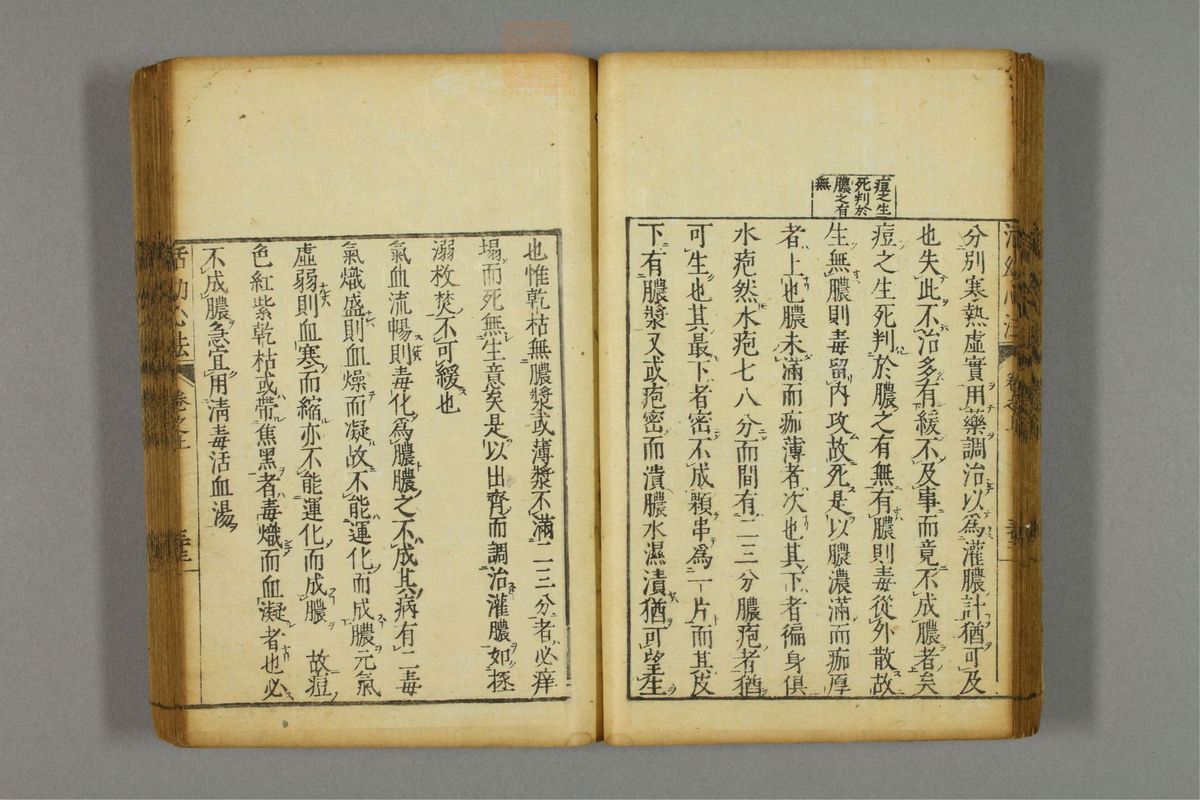 分別寒熱虛實用藥調治以爲灌膿計猶可及
也失此不治多有緩不及事而竟不成膿者矣
痘之生
死判於
膿之有
無
痘之生死判於膿之有無有膿則毒從外散故
生無膿則毒留內攻故死是以膿濃滿而痂厚
者上也膿未滿而痂薄者次也其下者徧身俱
水疱然水疱七八分而間有二三分膿疱者猶
可生也其最下者密不成顆串爲一片而其皮
下有膿漿又或疱密而潰膿水濕漬猶可望生
也惟乾枯無膿漿或薄漿不滿二三分者必痒
塌而死無生意矣是以出齊而調治灌膿如拯
溺救焚不可緩也
氣血流暢則毒化爲膿膿之不成其病有二毒
氣熾盛則血燥而凝故不能運化而成膿元氣
虛弱則血寒而縮亦不能運化而成膿 故痘
色紅紫乾枯或帶焦黑者毒熾而血凝者也必
不成膿急宜用淸毒活血湯
活幼心法 卷之